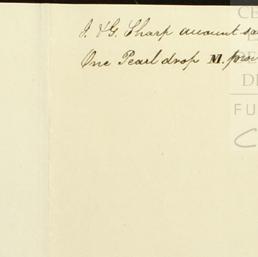 J. & G. Sharp account sa
One Pearl drop M. prov
CE
RE
DE
FU
C